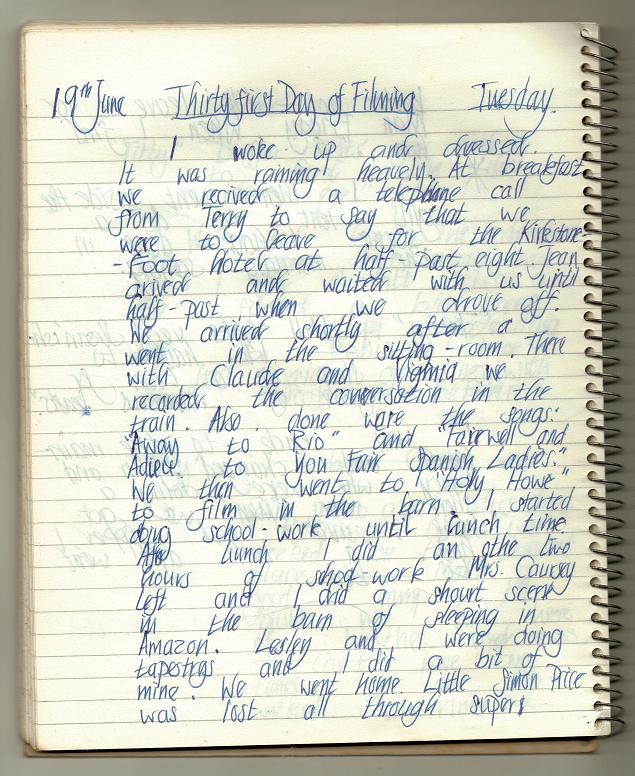 19th June Thirty first Day of Filming Tuesday.
I woke up and dressed.
It was raining heavely. At breakfast
we recived a telephone call
from Terry to say that we
were to leave for the Kirkstone-
-Foot Hotel at half-past eight. Jean
arived and waited with us until
half-past when we drove off.
We arrived shortly after a
went in the sitting-room. There
with Claude and Virginia we
recorded the conversation in the
train. Also done ware the songs:
"Away to Rio" and "Fairwell and
Adieu to you Fair Spanish Ladies."
We then went to "Holy Howe"
to film in the barn. I started
doing school-work until lunch time.
After lunch I did an othe two
hours of shool-work Mrs. Causey
left and I did a shourt scene
in the barn of sleeping in
Amazon. Lesley and I were doing
tapestrys and I did a bit of
mine. We went home. Little Simon Price
was lost all through super!